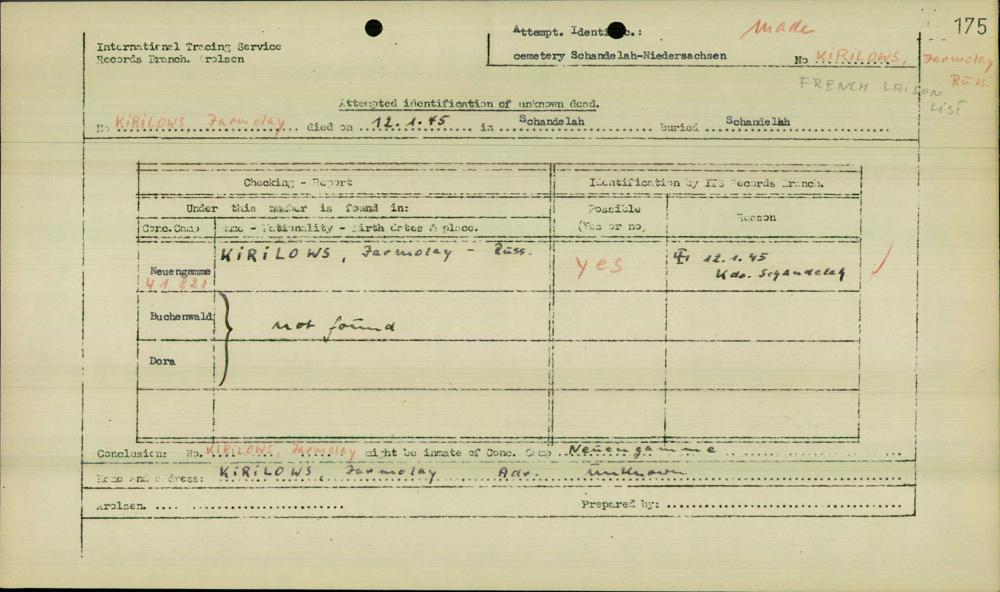 175
Attempt. Identific.: made
International Tracing Service
Records Branch. Arolsen
cemetery Schandelah-Niedersachsen No KIRILOWS, Jarmolay
Russ.
FRENCH LAISON
LIST
Attempted identification of unknown dead.
No KIRILOWS Jarmolay died on 12.1.45 in Schandelah buried Schandelah
Checking - Report Identification by ITS Records Branch.
Under this number is found in: Possible Reason
Conc.Camp Name - Nationality - Birth dates & place. (Yes or no)
KIRILOWS, Jarmolay - Russ.
Neuengamme yes 12.1.45
41 821 Kdo. Schandelah
Buchenwald not found
Dora
Conclusion: No. KIRILOWS, Jarmolay might be inmate of Conc. Camp Neuengamme
Name and address: KIRILOWS, Jarmolay Adr. unknown
Arolsen. Prepared by: